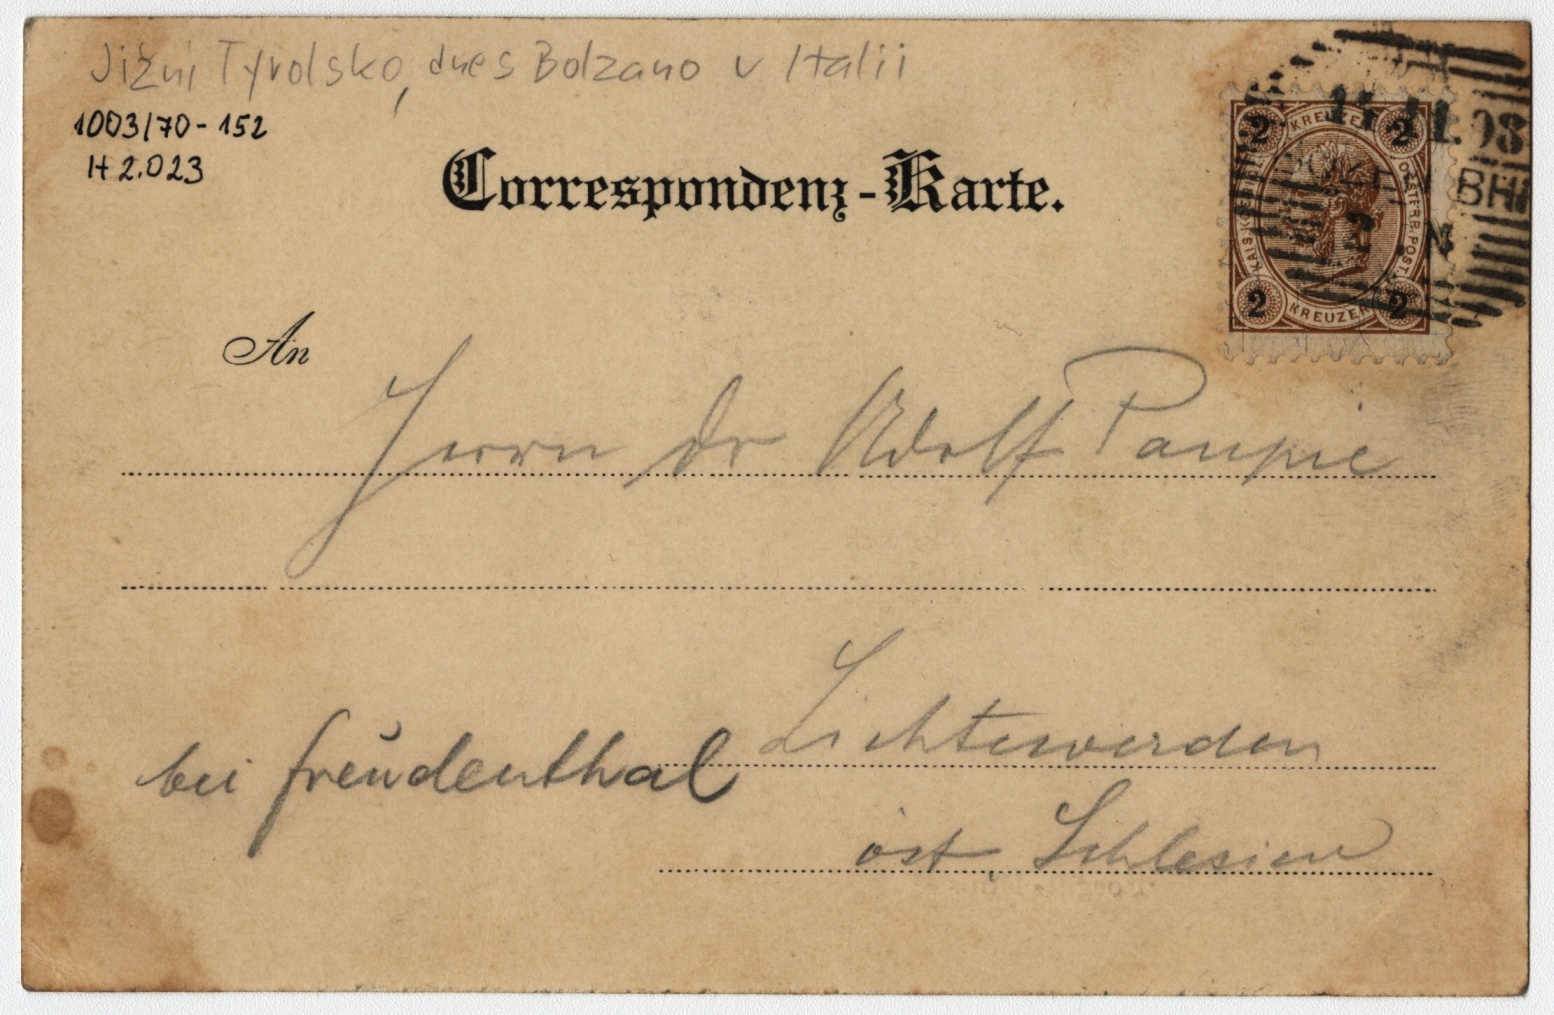 Jižní Tyrolsko, dnes Bolzano v Itálii
1003/70-152
H 2.023
Correspondenz-Karte.
2 KREUZER 2
KAIS. K. OESTERR. POST.
2 KREUZER 2
11.98
BHF
An
Herrn Dr Adolf Paupie
Lichtewerden
bei Freudenthal
öst. Schlesien